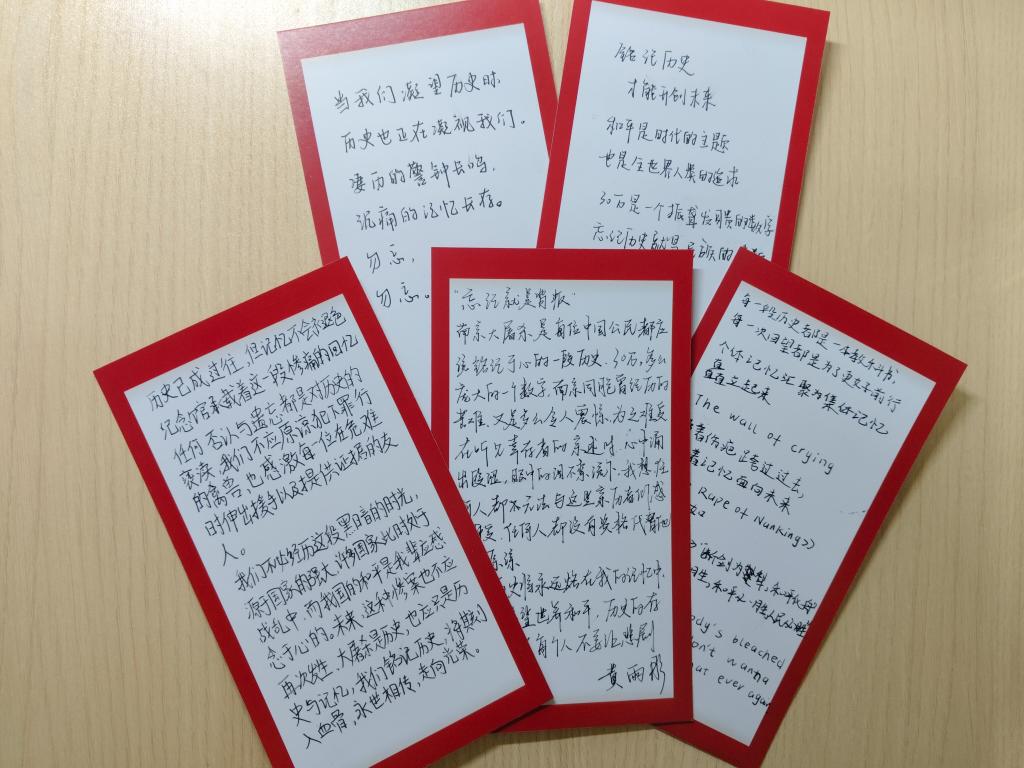 当我们凝望历史时，
历史也正在凝视我们。
凄历的警钟长鸣，
沉痛的记忆长存。
勿忘，
勿忘。
铭记历史
才能开创未来
和平是时代的主题
也是全世界人类的追求
30万是一个振聋发聩的数字
忘记历史就是民族的
历史已成过往，但记忆不会永远褪色
纪念馆承载着这一段惨痛的回忆
任何否认与遗忘都是对历史的
亵渎，我们不应原谅犯下罪行
的禽兽，也感激每一位在危难
时伸出援手以及提供证据的友
人。
我们不如经历这段黑暗的时光，
源于国家的强大，许多国家此时处于
战乱中，而我国的和平是我辈应感
念于心的。未来，这种惨案也不应
再次发生，大屠杀是历史，也应只是历
史与记忆，我们铭记历史，将其刻
入血骨，永世相传，走向光荣。
"忘记就是背叛"
南京大屠杀是每位中国公民都应
该铭记于心的一段历史。30万，多么
庞大的一个数字，南京同胞曾经历的
苦难，又是多么令人震惊，
在听幸存者的亲述时，心中涌
出，眼中的泪不禁流下，我想任
人都无法与这里亲历者们感
任何人都没有资格代替他
史将永远烙在我的记忆中，
世界和平，历史的存
每个人不要让悲剧
黄雨彤
每一段历史都是一本教科书，
每一次回望都是为了更好前行
个体记忆汇聚为集体记忆
矗立起来
The wall of crying
伤疤走过过去，
着记忆面向未来
Rape of Nanking》
断剑为犁，
ody's bleached
on't wanna
hat ever again